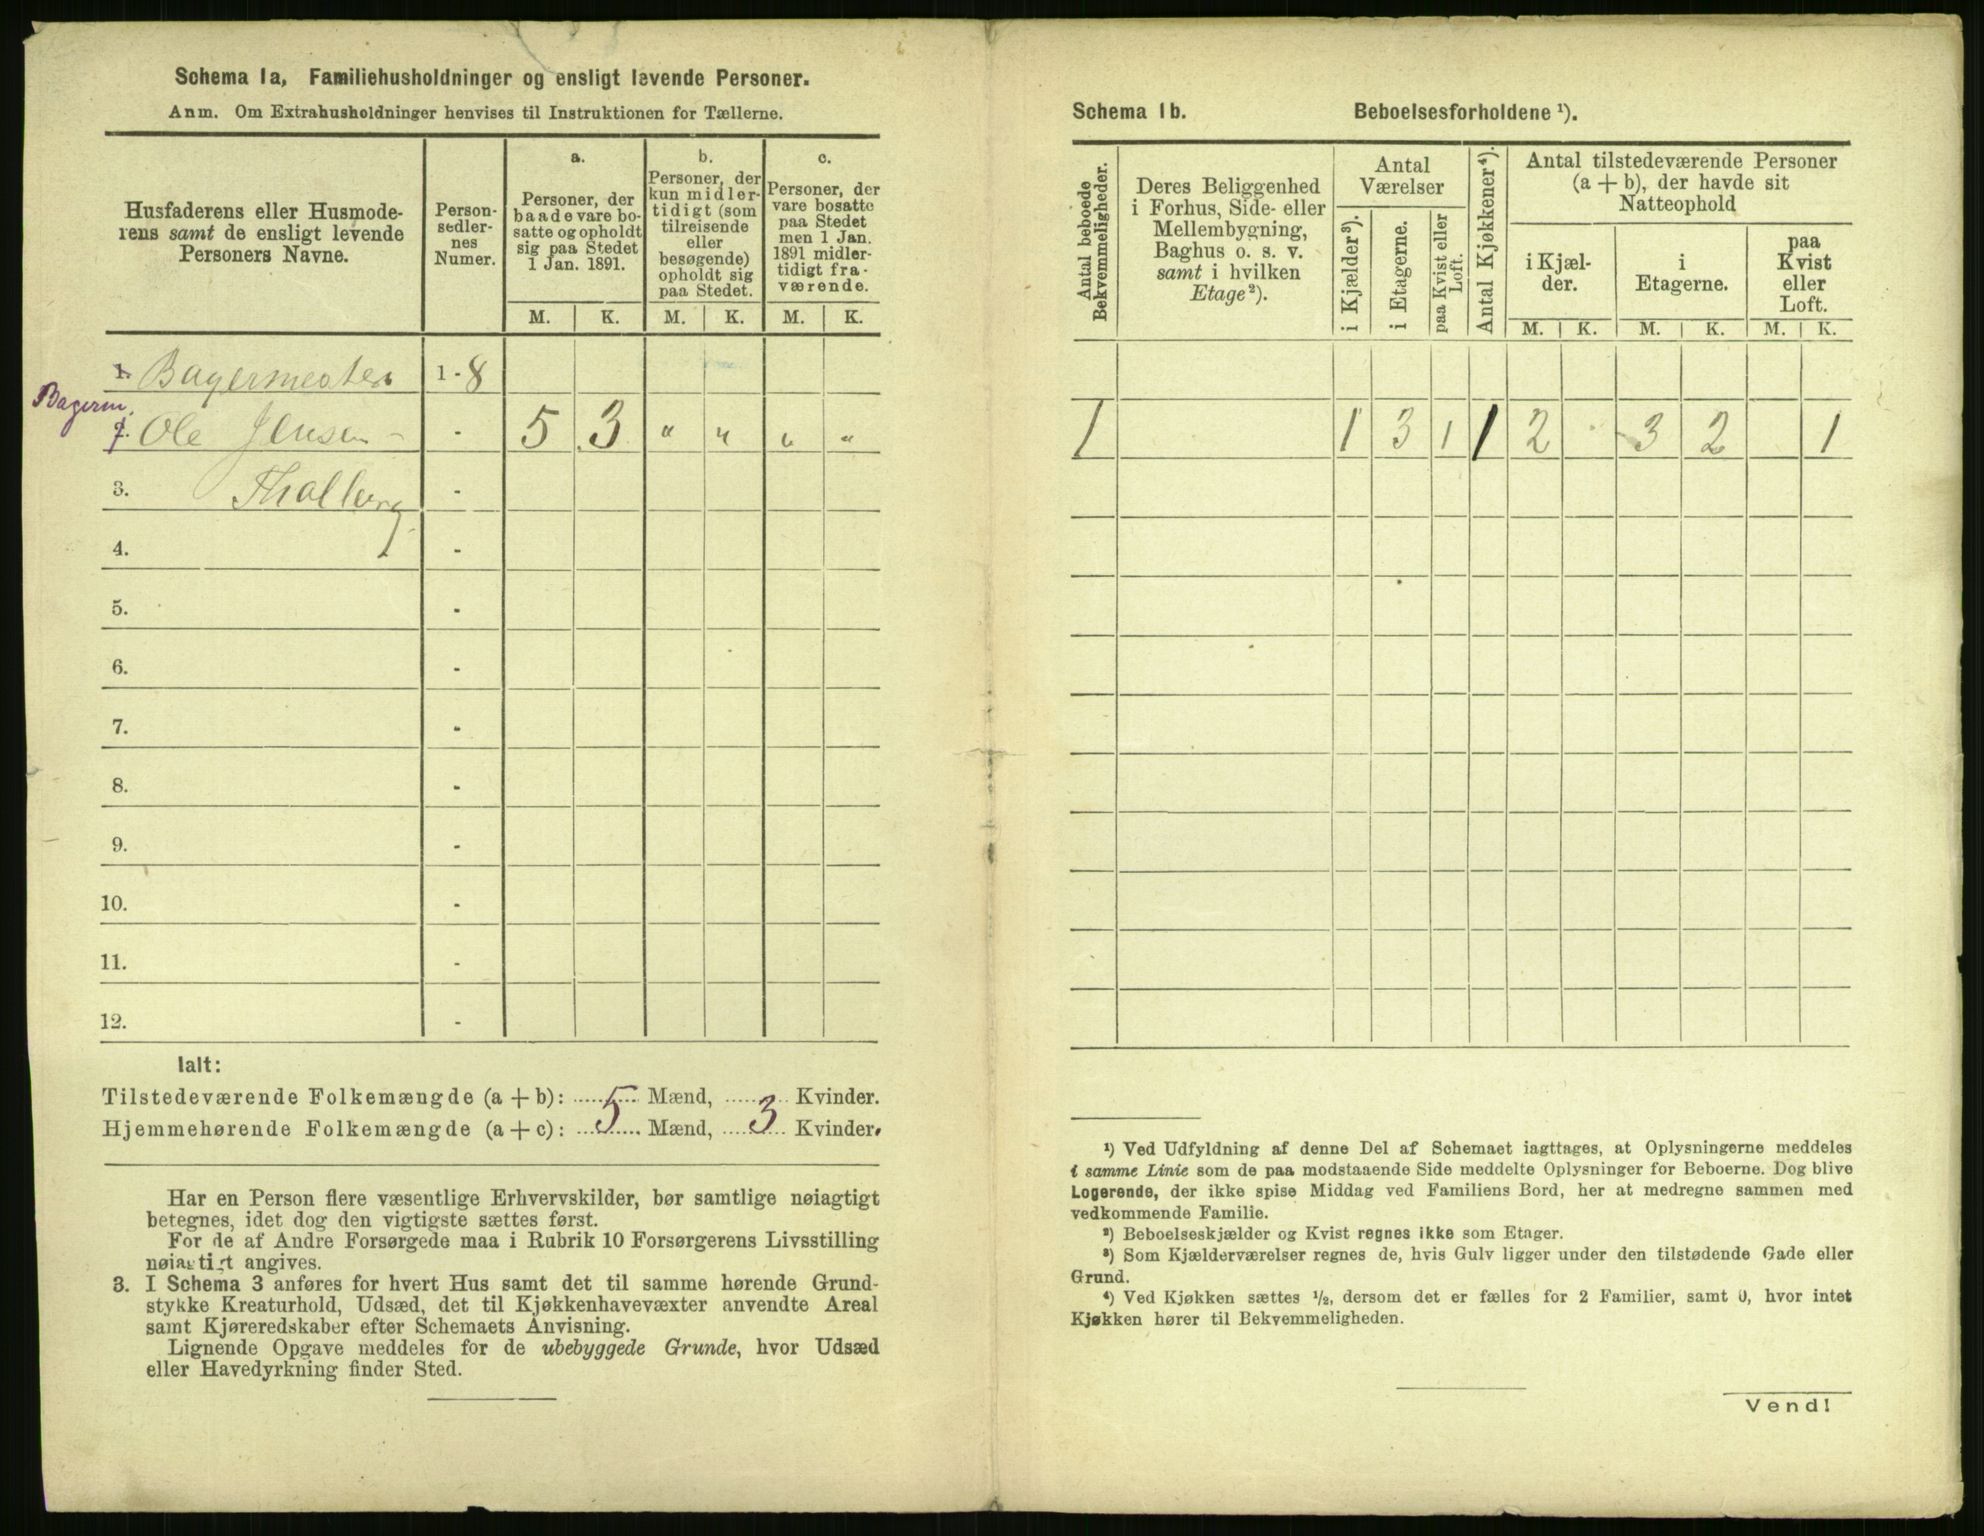 Schema 1a, Familiehusholdninger og ensligt levende Personer.
Anm. Om Extrahusholdninger henvises til Instruktionen for Tællerne.
Husfaderens eller Husmode-
rens samt de ensligt levende
Personers Navne.
Person-
sedler-
nes
Numer.
a.
Personer, der
baade vare bo-
satte og opholdt
sig paa Stedet
1 Jan. 1891.
b.
Personer, der
kun midler-
tidigt (som
tilreisende
eller
besøgende)
opholdt sig
paa Stedet.
c.
Personer, der
vare bosatte
paa Stedet
men 1 Jan.
1891 midler-
tidigt fra-
værende.
M. K. M. K. M. K.
1. Bagermester 1 - 8
Bagerm.
2. Ole Jensen - - 5 3 " " " "
3. Thalberg -
4. -
5. -
6. -
7. -
8. -
9. -
10. -
11. -
12. -
Ialt:
Tilstedeværende Folkemængde (a + b): 5 Mænd, 3 Kvinder.
Hjemmehørende Folkemængde (a + c): 5 Mænd, 3 Kvinder.
Har en Person flere væsentlige Erhvervskilder, bør samtlige nøiagtigt
betegnes, idet dog den vigtigste sættes først.
For de af Andre Forsørgede maa i Rubrik 10 Forsørgerens Livsstilling
nøiagtigt angives.
3. I Schema 3 anføres for hvert Hus samt det til samme hørende Grund-
stykke Kreaturhold, Udsæd, det til Kjøkkenhavevæxter anvendte Areal
samt Kjøreredskaber efter Schemaets Anvisning.
Lignende Opgave meddeles for de ubebyggede Grunde, hvor Udsæd
eller Havedyrkning finder Sted.
Schema 1b. Beboelsesforholdene ¹).
Antal beboede
Bekvemmeligheder.
Deres Beliggenhed
i Forhus, Side- eller
Mellembygning,
Baghus o. s. v.
samt i hvilken
Etage ²).
Antal
Værelser
i Kjælder ³).
i Etagerne.
paa Kvist eller
Loft.
Antal Kjøkkener ⁴).
Antal tilstedeværende Personer
(a + b), der havde sit
Natteophold
i Kjæl-
der.
i
Etagerne.
paa
Kvist
eller
Loft.
M. K. M. K. M. K.
1 1 3 1 1 2 3 2 1
¹) Ved Udfyldning af denne Del af Schemaet iagttages, at Oplysningerne meddeles
i samme Linie som de paa modstaaende Side meddelte Oplysninger for Beboerne. Dog blive
Logerende, der ikke spise Middag ved Familiens Bord, her at medregne sammen med
vedkommende Familie.
²) Beboelseskjælder og Kvist regnes ikke som Etager.
³) Som Kjælderværelser regnes de, hvis Gulv ligger under den tilstødende Gade eller
Grund.
⁴) Ved Kjøkken sættes ½, dersom det er fælles for 2 Familier, samt 0, hvor intet
Kjøkken hører til Bekvemmeligheden.
Vend!